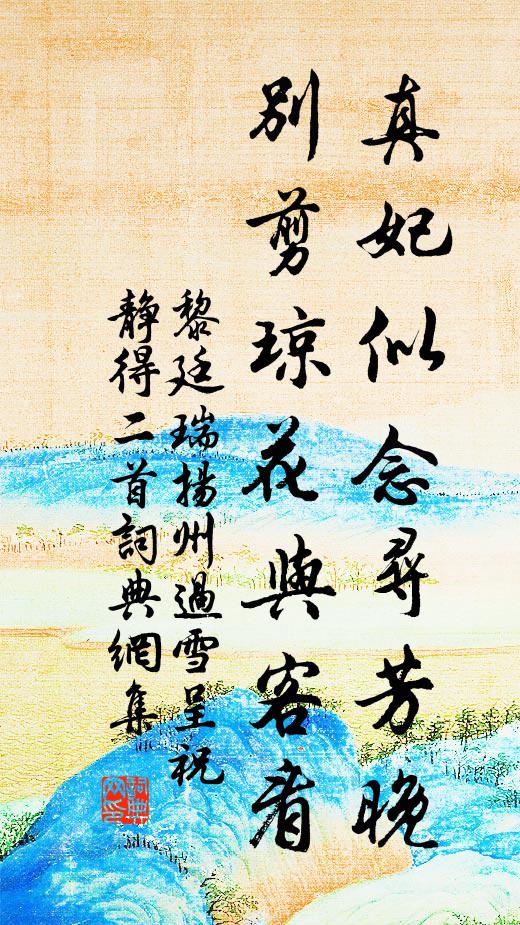 真妃似念尋芳晚
別剪琼花與客看
黎廷瑞揚州過雪呈祝
静得二首詞典網集